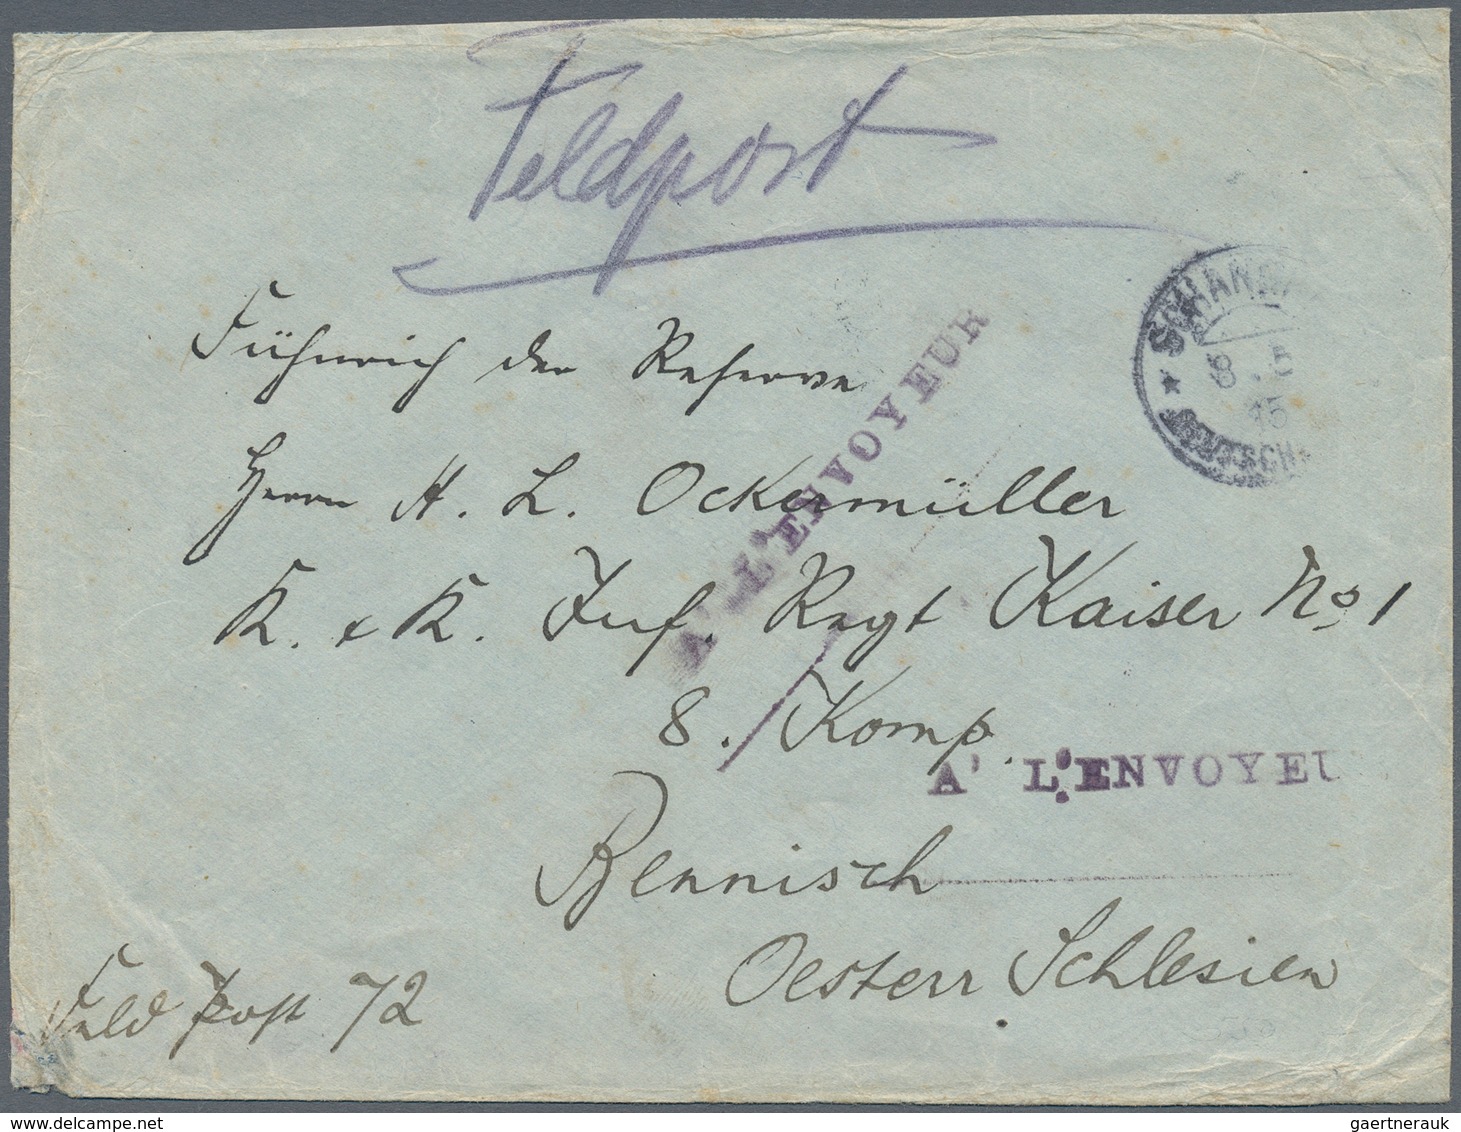 Feldpost
Fähnrich der Reserve
Herrn H. L. Ockermüller
K. & K. Inf. Regt Kaiser No 1
8. Komp.
Bennisch
Oesterr Schlesien
Feld Post 72
A' L'ENVOYEUR
A' L'ENVOYEU
8 . 5
15
gaertnerauk